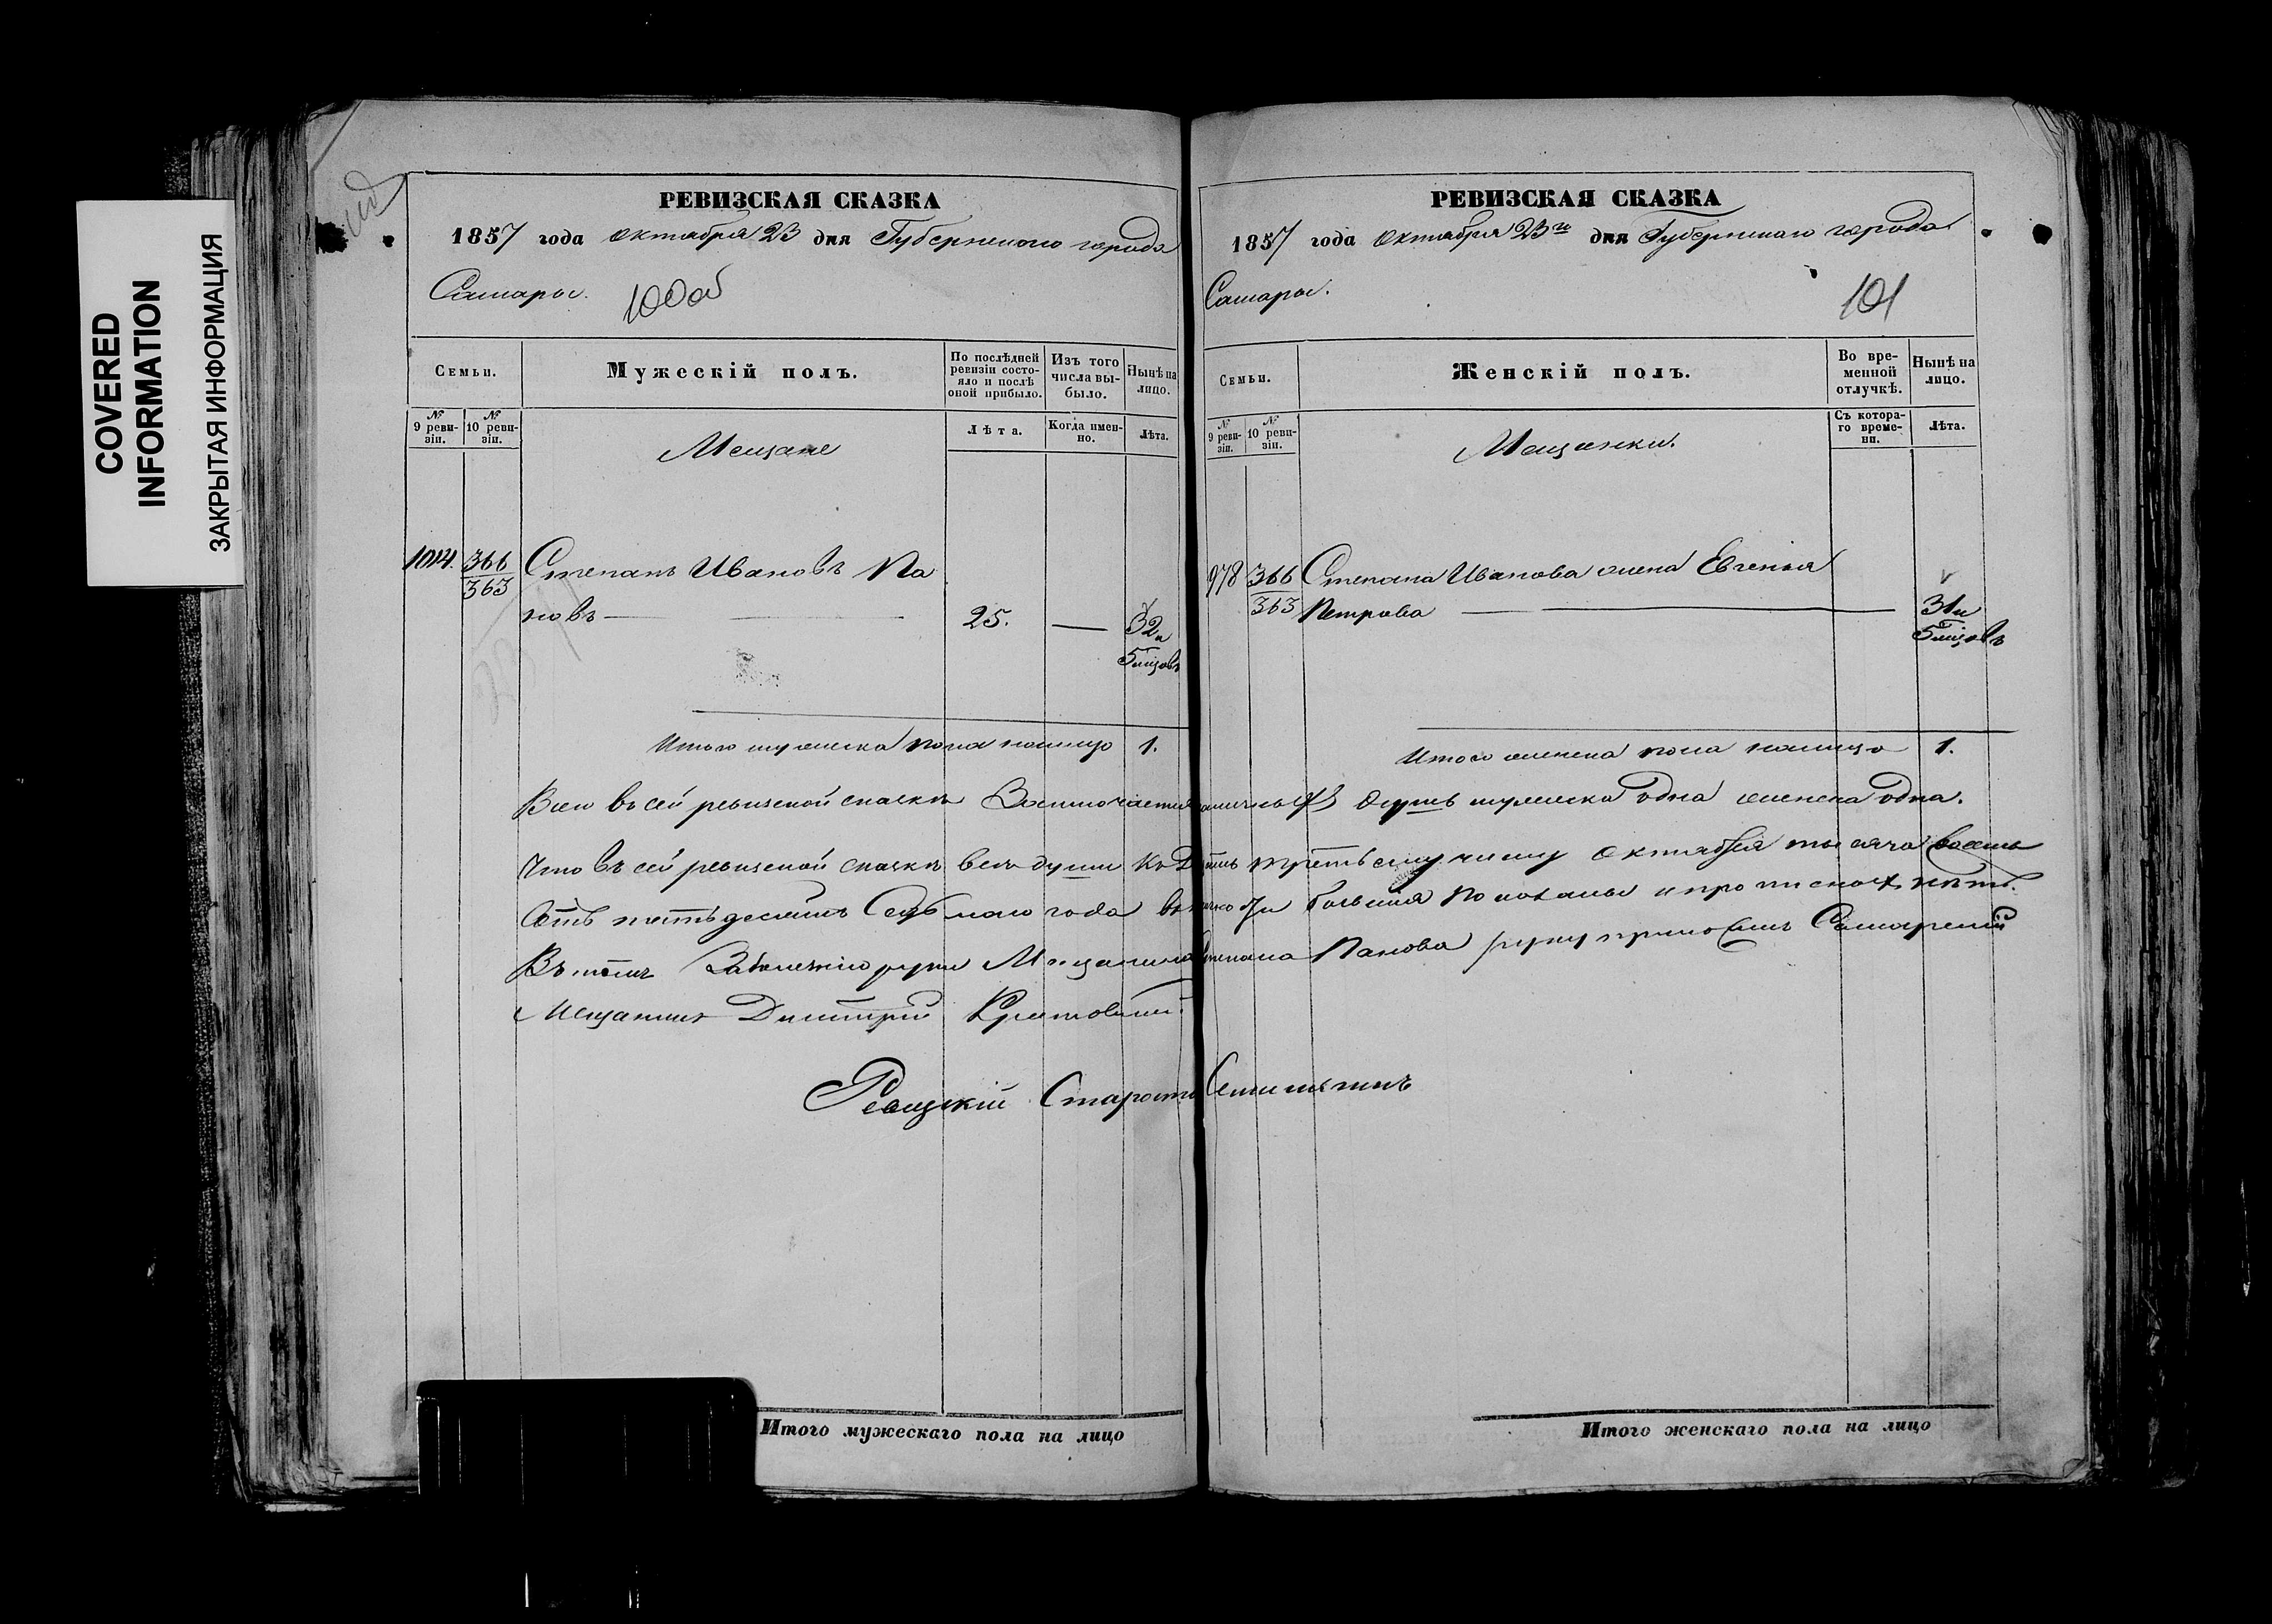 COVERED
INFORMATION
ЗАКРЫТАЯ ИНФОРМАЦИЯ
РЕВИЗСКАЯ СКАЗКА
1857 года октября 23 дня Губернскаго города
Самары.
100об
Семьи.
Мужескій полъ.
По послѣдней ревизіи состо-
яло и послѣ
оной прибыло.
Изъ того
числа вы-
было.
Нынѣ на
лицо.
№
9 реви-
зіи.
№
10 реви-
зіи.
Мещане
Лѣта.
Когда имен-
но.
Лѣта.
1014.
366
363
Степанъ Ивановъ Па
новъ
25.
32 и
5 мѣцовъ
Итого мужеска пола налицо 1.
РЕВИЗСКАЯ СКАЗКА
1857 года октября 23го дня Губернскаго города
Самары.
101
Семьи.
Женскій полъ.
Во вре-
менной
отлучкѣ.
Нынѣ на
лицо.
№
9 реви-
зіи.
№
10 реви-
зіи.
Мещанки.
Съ котора-
го време-
ни.
Лѣта.
978
366
363
Степана Иванова жена Евгенія
Петрова
31 и
5 мѣцовъ
Итого женска пола налицо 1.
Всего въ сей ревизской сказкѣ душъ мужеска одна женска одна.
Что въ сей ревизской сказкѣ всѣ души къ третьему числу октября тысяча восемь
сотъ пятьдесятъ седьмого года показаны и прописныхъ нѣтъ.
Въ томъ За болезнію руки Мещанина Степана Панова руку приложилъ Самарскій
Мещанинъ Дмитрій
Ревизскій Староста
Итого мужескаго пола на лицо
Итого женскаго пола на лицо